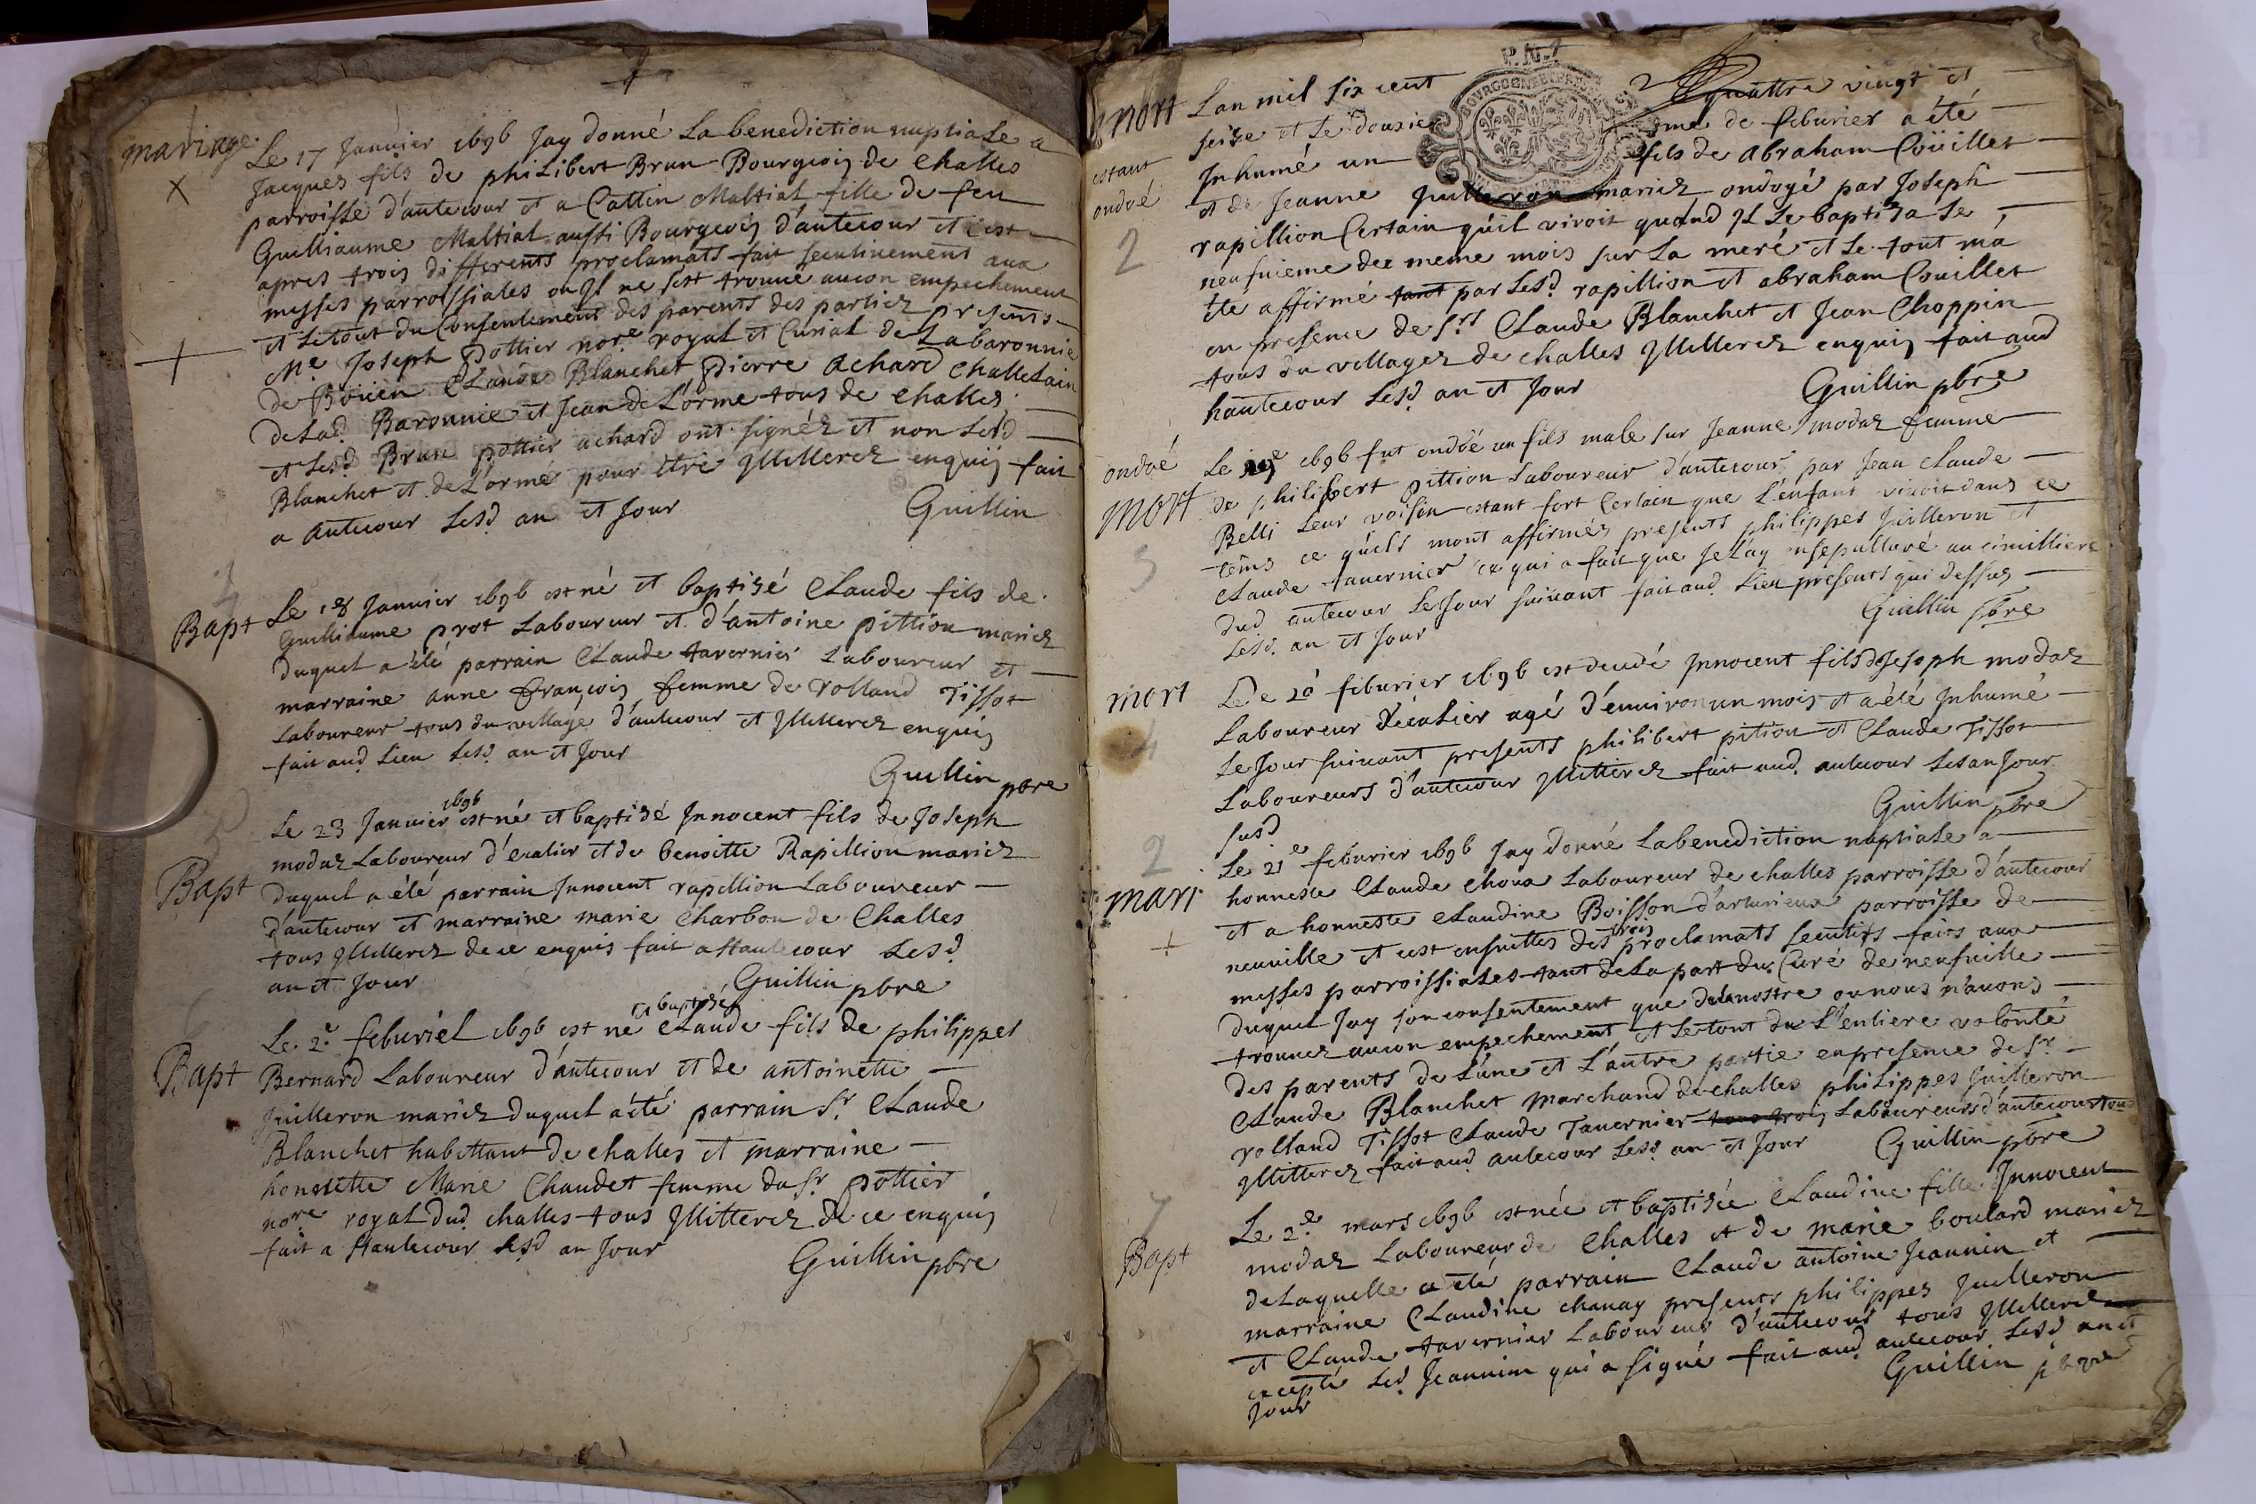 mariage
Le 17 Januier 1696 Jay donné La benediction nuptiale a
Jacques fils de philibert Brun Bourgeois de Challes
parroisse d'autecour et a Cattin Maltiat fille de feu
Guilliaume Maltiat aussi Bourgeois d'autecour et c'est
apres trois differents proclamats fait secutiuement aux
messes parrossiales ou Jl ne s'est trouué aucon empechement
et Letout du Consentement des parents des parties presents
Me Joseph Pottier nore royal et Curial de Labaronnie
de Boüen CLaude Blanchet Pierre Achard Chattelain
deLad. Baronnie et Jean deL'orme tous de Challes
et Lesd. Brun pottier achard ont signéz et non Lesd
Blanchet et de L'orme pour être Jllitterez enquis fait
a autecour Lesd an et Jour
Guillin
1
Bapt
Le 18 Januier 1696 est né et baptizé CLaude fils de
Guilliaume prot Laboureur et d'antoine pittion mariez
duquel a été parrain CLaude tavernier Laboureur et
marraine anne françois femme de rolland Tissot
Laboureur tous du village d'autecour et Jllitterez enquis
fait aud. Lieu Lesd. an et Jour
Guillin pbre
Bapt
1696
Le 23 Januier est né et baptizé Jnnocent fils de Joseph
modaz Laboureur d'ecalier et de benoitte Rapillion mariez
duquel a été parrain Jnnocent rapillion Laboureur
d'autecour et marraine marie Charbon de Challes
tous Jllitterez de ce enquis fait a Hautecour Lesd.
an et Jour
Guillin pbre
Bapt
et baptizé
Le 2e feburier 1696 est né CLaude fils de philippes
Bernard Laboureur d'autecour et de antoinette
Juilleron mariez duquel a été parrain Sr. CLaude
Blanchet habittant de challes et marraine
honnette Marie Chaudet femme du Sr pottier
nore royal dud. challes tous Jllitterez de ce enquis
fait a Hautecour Lesd an Jour
Guillin pbre
mort
estant
ondoé
2
Lan mil six cent quattre vingt et
seize et Le dousiesme de feburier a été
Jnhumé un fils de abraham Coüillet
et de Jeanne Juilleron mariez ondoyé par Joseph
rapillion Certain qu'il vivoit quand Jl Le baptiza Le
neufuieme de meme mois sur La meré et Le tout ma
éte affirmé tant par Lesd. rapillion et abraham Couillet
en presence de Srs CLaude Blanchet et Jean Choppin
tous du villages de challes Jllitterez enquis fait aud
hautecour Lesd. an et Jour
Guillin pbre
ondoé
mort
3
Le 19e 1696 fut ondoé un fils male sur Jeanne modaz femme
de philibert pittion Laboureur d'autecour par Jean claude
Belli Leur voisin estant fort Certain que L'enfant viuoit dans ce
tems ce qu'ils mont affirméz presents philippes Juilleron et
CLaude tauernier ce qui a fait que Je L'ay ensepulturé au cimilliere
dud autecour Le Jour suiuant fait aud. Lieu presents qui dessus
Lesd. an et Jour
Guillin pbre
mort
4
Le 20 feburier 1696 est decedé Jnnocent fils de Joseph modaz
Laboureur d'écalier agé d'enuiron un mois et a été Jnhumé
Le Jour suiuant presents philibert pition et CLaude Tissot
Laboureurs d'autecour Jllitterez fait aud. autecour Les an Jour
susd
Guillin pbre
2
mari
Le 21e feburier 1696 Jay donné La benediction nuptiale a
honneste CLaude Choux Laboureur de challes parroisse d'autecour
et a honneste cLaudine Boisson d'arturieux parroisse de
neuuille et cest ensuittes des trois proclamats secutifs fairs aux
messes parroissiales tant deLa part du Curé de neufuille
duquel Jay son consentement que deLa nostre ou nous n'auons
trouuez aucon empechement et Le tout du L'entiere volonté
des parents de L'une et L'autre partie en presence de Sr
CLaude Blanchet marchand de challes phiLippes Juilleron
rolland Tissot CLaude Tauernier Laboureurs d'autecour tous
Jllitterez fait aud autecour Lesd an et Jour
Guillin pbre
7
Bapt
Le 2e mars 1696 est née et baptizée CLaudine fille Jnnocent
modaz Laboureur de Challes et de marie boulard mariez
de Laquelle a été parrain CLaude antoine Jeannin et
marraine CLaudine chanay presents philippes Juilleron
et CLaude tavernier Laboureur d'autecour tous Jllitterez
excepté Led. Jeannin qui a signé fait aud autecour Lesd. an et
Jour
Guillin pbre